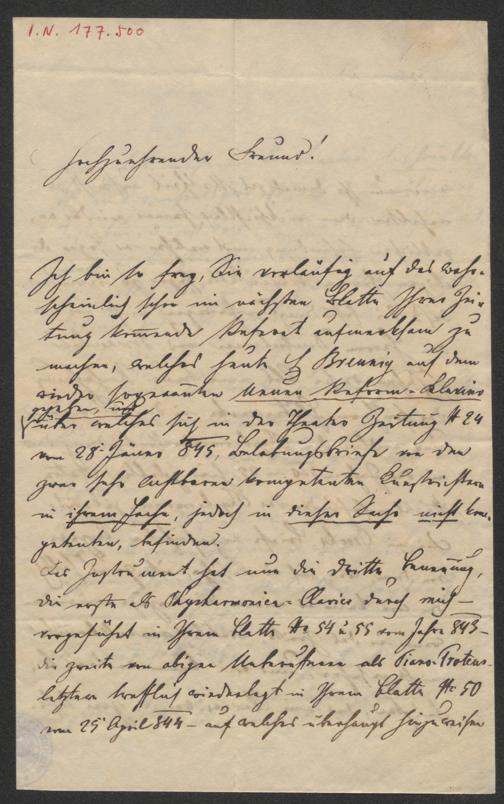 I.N. 177.500
Hochzuehrender Freund!
Ich bin so frey, Sie vorläufig auf das wahr-
scheinlich schon im nächsten Blatte Ihrer Zei-
tung kommende Referat aufmerksam zu
machen, welches heute H Breunig auf dem
wieder sogenannten neuen Reform-Clavier
gegeben, und
über welches sich in der Theater Zeitung N 24
vom 28 Jäner 845, Belobungsbriefe von den
zwar sehr achtbaren kompetenten Kunstrichtern
in ihrem Fache, jedoch in dieser Sache nicht kom-
petenten, befinden.
Das Instrument hat nun die dritte Benennung,
die erste als Physharmonica-Clavier durch mich –
vorgeführt in Ihrem Blatte No 54 u 55 vom Jahre 843 –
die zweite von obigen als Piano-Proteus
letztere trefflich wiederlegt in Ihrem Blatte No 50
vom 25 April 844 – auf welches überhaupt hinzuweisen